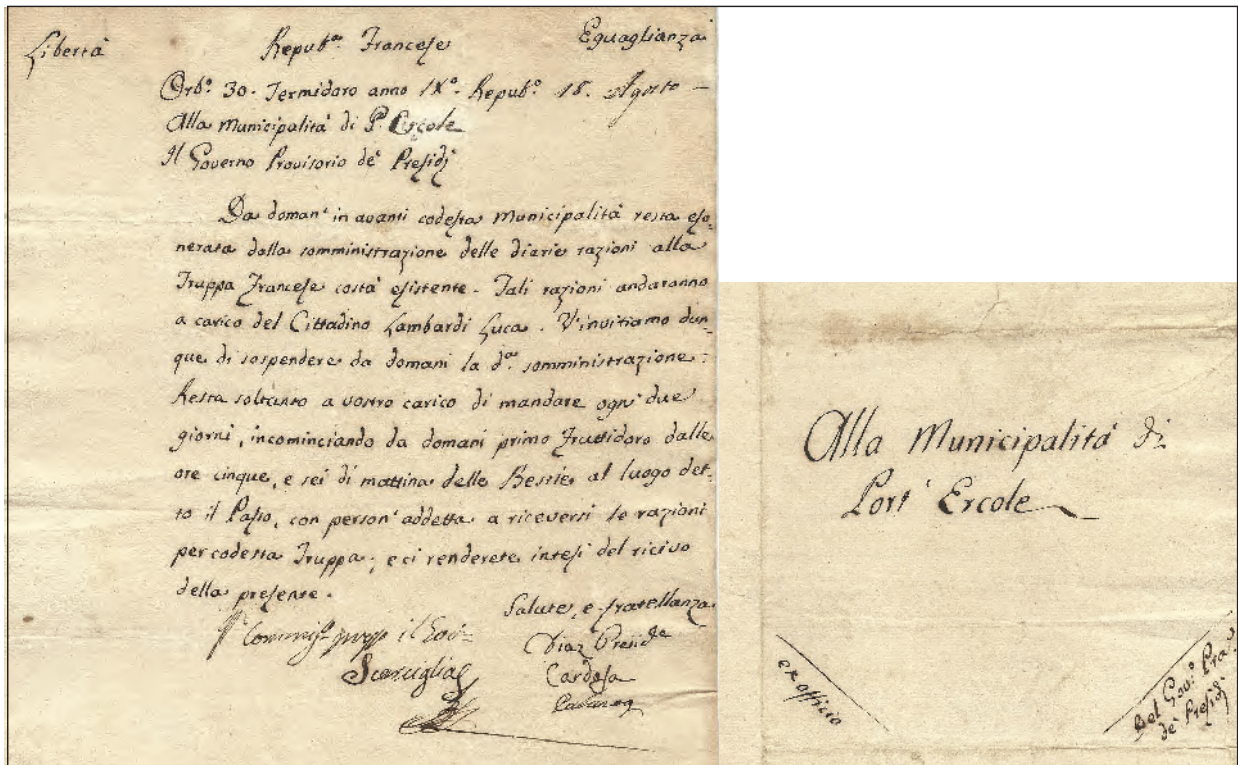 Libertà Repub.ᵃ Francese Eguaglianza
Orb.º 30. Termidoro anno IX.º Repub.º 18. Agosto -
Alla Municipalità di P. Ercole
Il Governo Provisorio de' Presidj
Da doman' in avanti codesta Municipalità resta eso-
nerata dalla somministrazione delle diarie razioni alla
Truppa Francese costà esistente. Tali razioni andaranno
a carico del Cittadino Lambardi Luca. V'invitiamo dun-
que di sospendere da domani la d.ᵃ somministrazione.
Resta soltanto a vostro carico di mandare ogni due
giorni, incominciando da domani primo Fruttidoro dalle
ore cinque, e sei di mattina delle Bestie al luogo det-
to il Passo, con person' addetta a riceversi le razioni
per codesta Truppa; e ci renderete intesi del ricivo
della presente.
Salute, e fratellanza
il Gov:
Diaz Presid.ᵉ
Scarciglia
Cardosa
Alla Municipalità di
Port' Ercole
ex officio
Del Gov.º Pro.º
de' Presidj